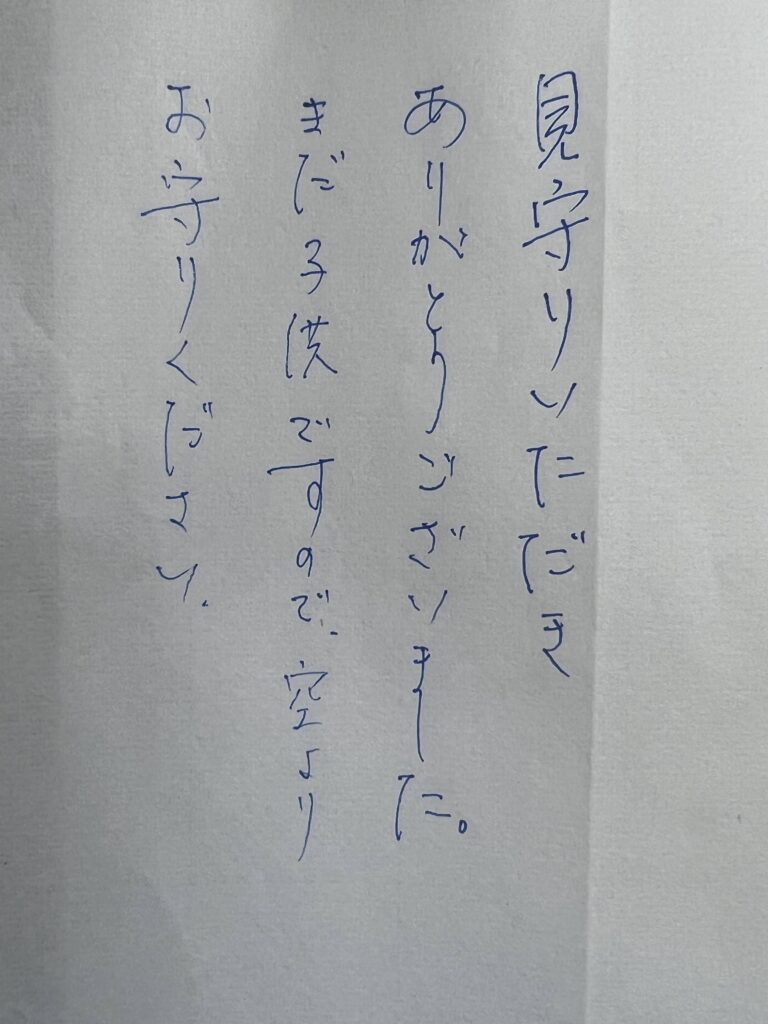 見守りいただき
ありがとうございました。
まだ子供ですので、空より
お守りください、